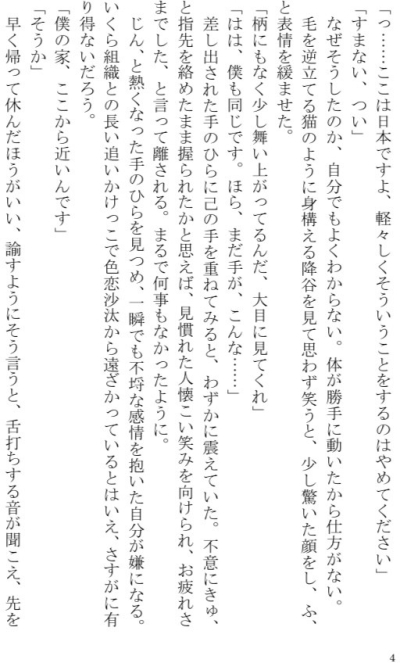 「っ……ここは日本ですよ、軽々しくそういうことをするのはやめてください」
「すまない、つい」
　なぜそうしたのか、自分でもよくわからない。体が勝手に動いたから仕方がない。
　毛を逆立てる猫のように身構える降谷を見て思わず笑うと、少し驚いた顔をし、ふ、
と表情を緩ませた。
「柄にもなく少し舞い上がってるんだ、大目に見てくれ」
「はは、僕も同じです。ほら、まだ手が、こんな……」
　差し出された手のひらに己の手を重ねてみると、わずかに震えていた。不意にきゅ、
と指先を絡めたまま握られたかと思えば、見慣れた人懐こい笑みを向けられ、お疲れさ
までした、と言って離される。まるで何事もなかったように。
　じん、と熱くなった手のひらを見つめ、一瞬でも不埒な感情を抱いた自分が嫌になる。
いくら組織との長い追いかけっこで色恋沙汰から遠ざかっているとはいえ、さすがに有
り得ないだろう。
「僕の家、ここから近いんです」
「そうか」
　早く帰って休んだほうがいい、諭すようにそう言うと、舌打ちする音が聞こえ、先を
4